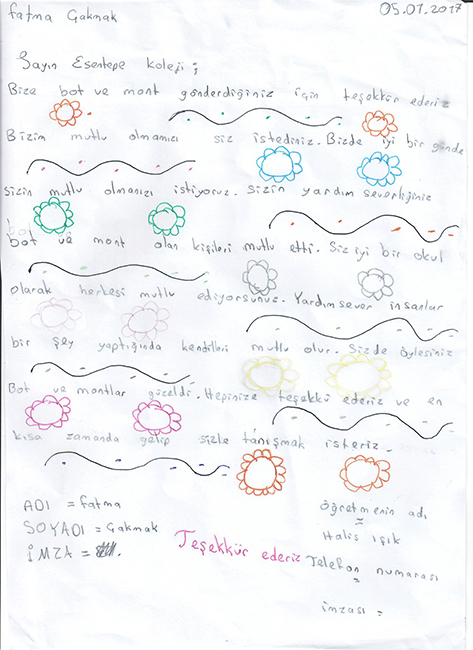 fatma Çakmak 05.01.2017
Sayın Esentepe koleji;
Bize bot ve mont gönderdiğiniz için teşekkür ederiz
Bizim mutlu olmamızı siz istediniz. Bizde iyi bir günde
sizin mutlu olmanızı istiyoruz. Sizin yardım severliğiniz
bot ve mont olan kişileri mutlu etti. Siz iyi bir okul
olarak herkesi mutlu ediyorsunus. Yardımsever insanlar
bir şey yaptığında kendilleri mutlu olur. Sizde öylesiniz
Bot ve montlar güzeldi. Hepinize teşekkü ederiz ve en
kısa zamanda gelip sizle tanışmak isteriz.
ADI = fatma
SOYADI = Çakmak
İMZA =
Teşekkür ederiz
öğretmenin adı
=
Halis ışık
Telefon numarası
=
imzası =